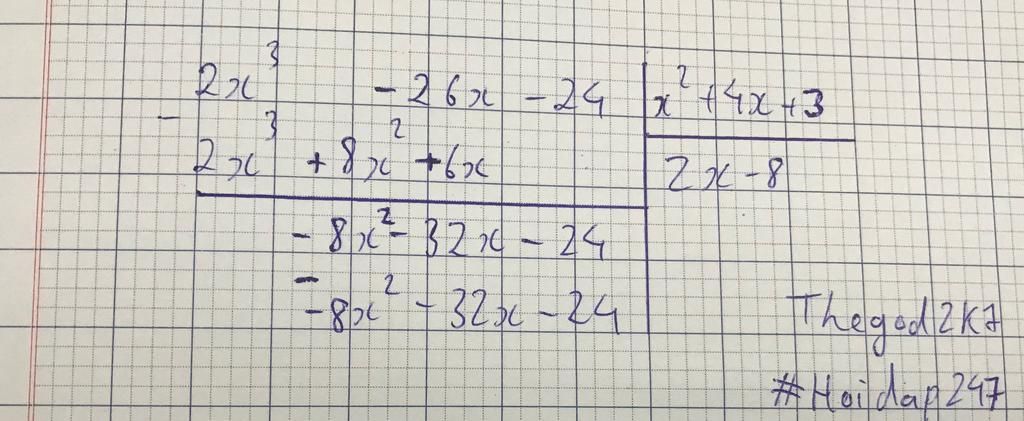 2x³ - 26x - 24 | x² + 4x + 3
-
2x³ + 8x² + 6x | 2x - 8
- 8x² - 32x - 24
-
-8x² - 32x - 24
Thegod2k7
#Hoidap247